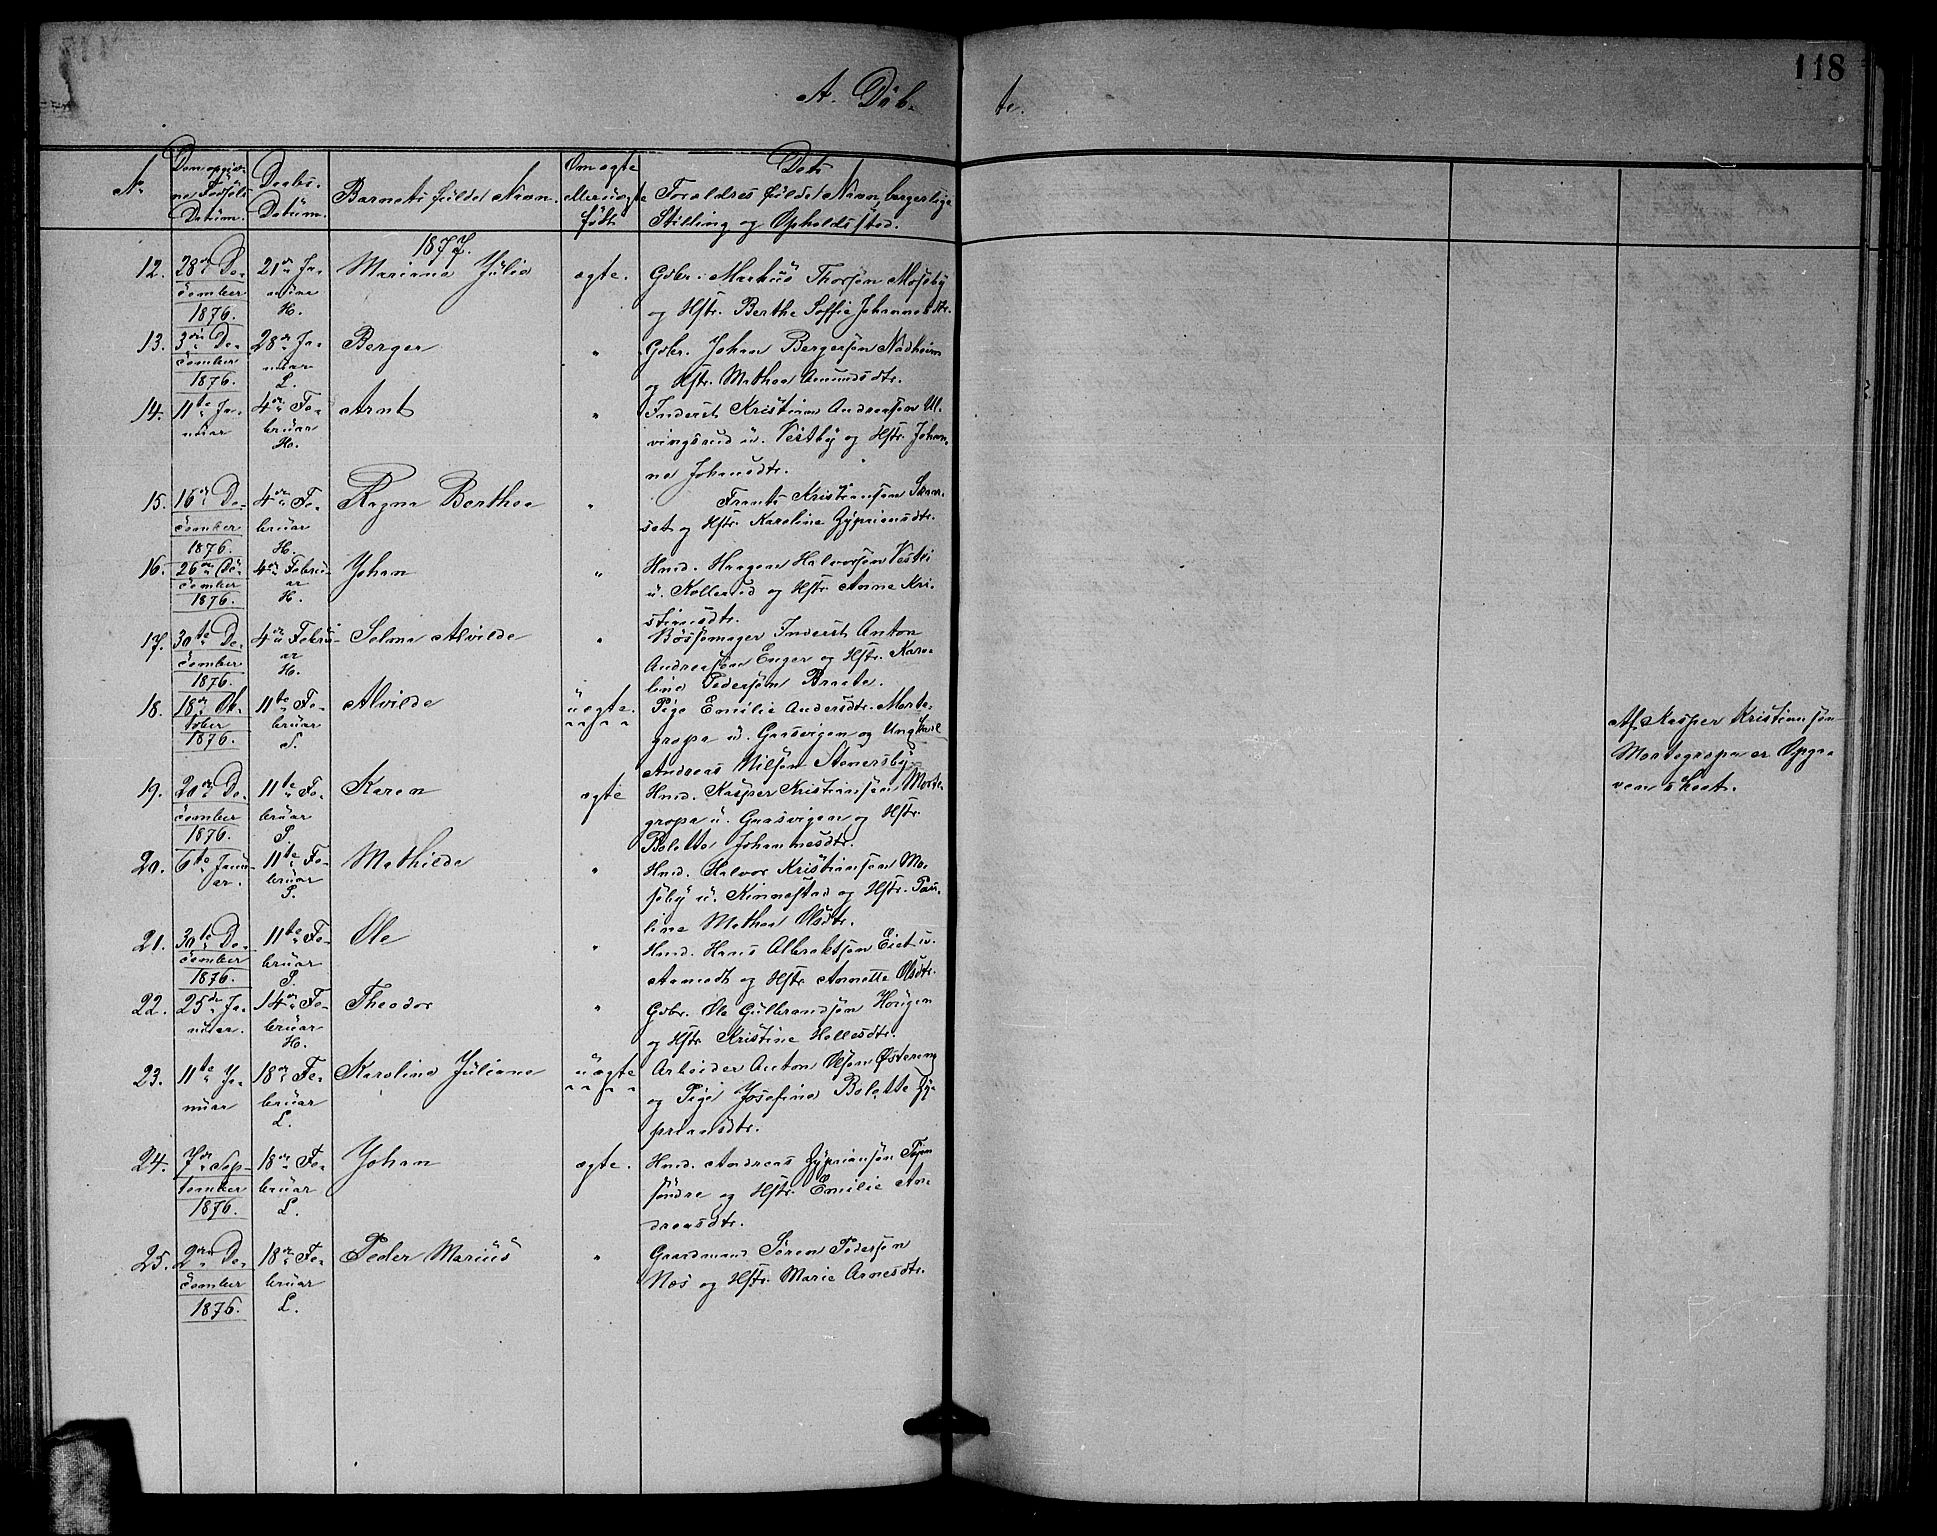 118
A. Døb-
te.
No
Den opgiv-
ne Fødsels
Datum.
Daabs-
Datum.
Barnets fulde Navn.
Om ægte
eller uægte
født.
Dets
Forældres fulde Navn, borgerlige
Stilling og Opholdssted.
1877.
12. 28de De-
cember
1876.
21de Ja-
nuar
H.
Mariane Julie
ægte.
Gbr. Markus Thorsen Moseby
og Hstr. Berthe Soffie Johannesdtr.
13. 3die De-
cember
1876.
28de Ja-
nuar
L.
Berger
"
Gbr. Johan Bergersen Nadheim
og Hstr. Mathea Amundsdtr.
14. 11te Ja-
nuar
4de Fe-
bruar
H.
Arnt
"
Inderst Kristian Andreasen Ul-
vingsrud u. Vestby og Hstr. Johan-
ne Johansdtr.
15. 16de De-
cember
1876.
4de Fe-
bruar
H.
Ragna Berthea
"
Frants Kristiansen Skan-
set og Hstr. Karoline Zypriansdtr.
16. 26de De-
cember
1876.
4de Febru-
ar
H.
Johan
"
Hmd. Haagen Halvorsen Vestvi
u. Kollerud og Hstr. Anne Kri-
stiansdtr.
17. 30te De-
cember
1876.
4de Febru-
ar
H.
Selma Alvilde
"
Bøssemager Inderst Anton
Andreasen Enger og Hstr. Karo-
line Pedersen Braate.
18. 18de Ok-
tober
1876.
11te Fe-
bruar
S.
Alvilde
uægte.
Pige Emilie Andersdtr. Morte-
gropa u. Gaasvigen og Ungkarl
Andreas Nilsen Stenersby.
Af Kasper Kristiansen
Mortegropa er Opga-
ven skeet.
19. 20de De-
cember
1876.
11te Fe-
bruar
P.
Karen
ægte
Hmd. Kasper Kristiansen Morte-
gropa u. Gaasvigen og Hstr.
Bolette Johannesdtr.
20. 6te Janu-
ar.
11te Fe-
bruar
P.
Mathilde
"
Hmd. Halvor Kristiansen Mo-
seby u. Kinnestad og Hstr. Pau-
line Mathea Olsdtr.
21. 30te De-
cember
1876.
11te Fe-
bruar
P.
Ole
"
Hmd. Hans Albraktsen Eiet u.
Arnedt og Hstr. Annette Olsdtr.
22. 25de Ja-
nuar.
14de Fe-
bruar
H.
Theodor
"
Gbr. Ole Gulbrandsen Horigen
og Hstr. Kristine Hellesdtr.
23. 11te Ja-
nuar
18de Fe-
bruar
L.
Karoline Juliane
uægte
Arbeider Anton Olsen Østereng
og Pige Josefine Bolette Zy-
priansdtr.
24. 7de Sep-
tember
1876.
18de Fe-
bruar
L.
Johan
ægte.
Hmd. Andreas Zypriansen Tojen
søndre og Hstr. Emilie An-
dreasdtr.
25. 2den De-
cember
1876.
18de Fe-
bruar
L.
Peder Marius
"
Gaardmand Søren Pedersen
Næs og Hstr. Marie Arnesdtr.